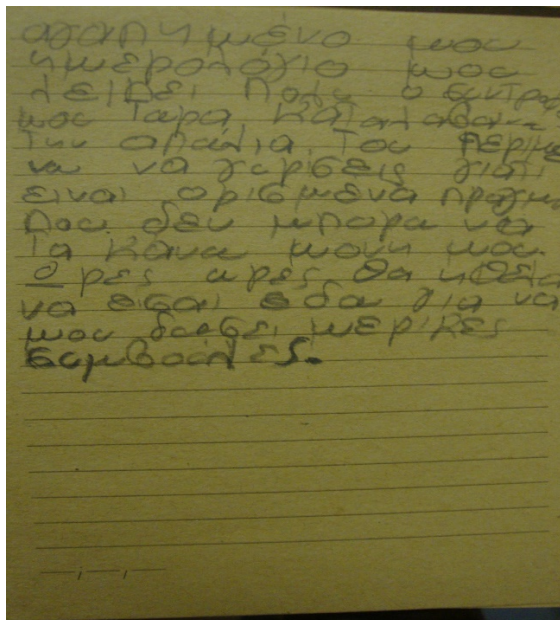 αγαπημένο μου
ημερολόγιο μου
λειπει πολυ ο συντρο
μου Ταρα καταλαβαινω
την απαλια του περιμε
νω να γυρισεις γιατι
ειναι ορισμένα πραγμ
που δεν μπορω να
τα κανω μονη μου
ορες ωρες θα ηθελα
να εισαι εδω για να
μου δωσει μερικες
συμβουλες.